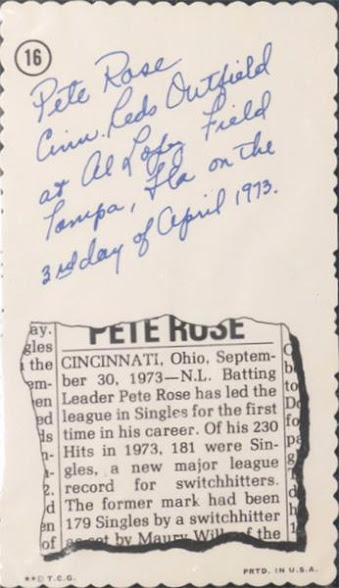 16
Pete Rose
Cinn. Reds Outfield
at Al Lopez Field
Tampa, Fla on the
3rd day of April 1973.
PETE ROSE
CINCINNATI, Ohio, Septem-
ber 30, 1973—N.L. Batting
Leader Pete Rose has led the
league in Singles for the first
time in his career. Of his 230
Hits in 1973, 181 were Sin-
gles, a new major league
record for switchhitters.
The former mark had been
179 Singles by a switchhitter
as set by Maury Wills of the
ay.
gles
the
em-
en
ed
ds
n-
-
2.
d
en
of
**© T.C.G.
PRTD. IN U.S.A.